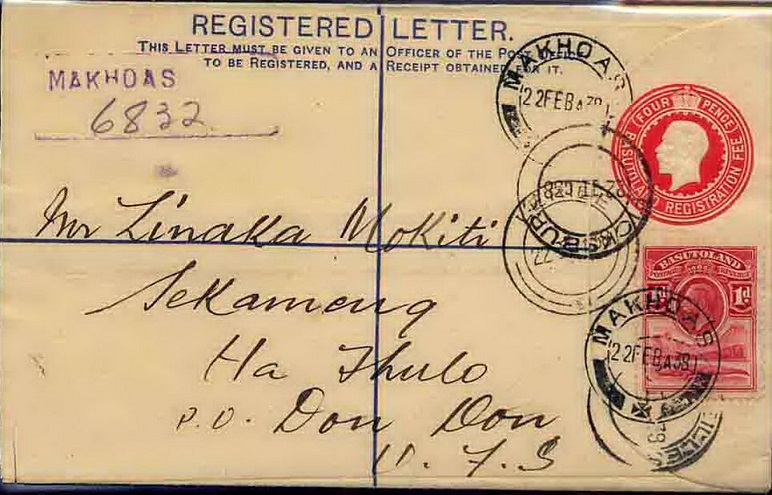 REGISTERED LETTER.
THIS LETTER MUST BE GIVEN TO AN OFFICER OF THE POST OFFICE
TO BE REGISTERED, AND A RECEIPT OBTAINED FOR IT.
MAKHOAS
6832
MAKHOAS
22 FEB
(FOUR PENCE)
BASUTOLAND REGISTRATION FEE
Mr Linaka Mokiti
Sekameng
Ha Thulo
P.O. Don Don
U.F.S
BASUTOLAND
POSTAGE REVENUE
1d 1d
MAKHOAS
22 FEB 38